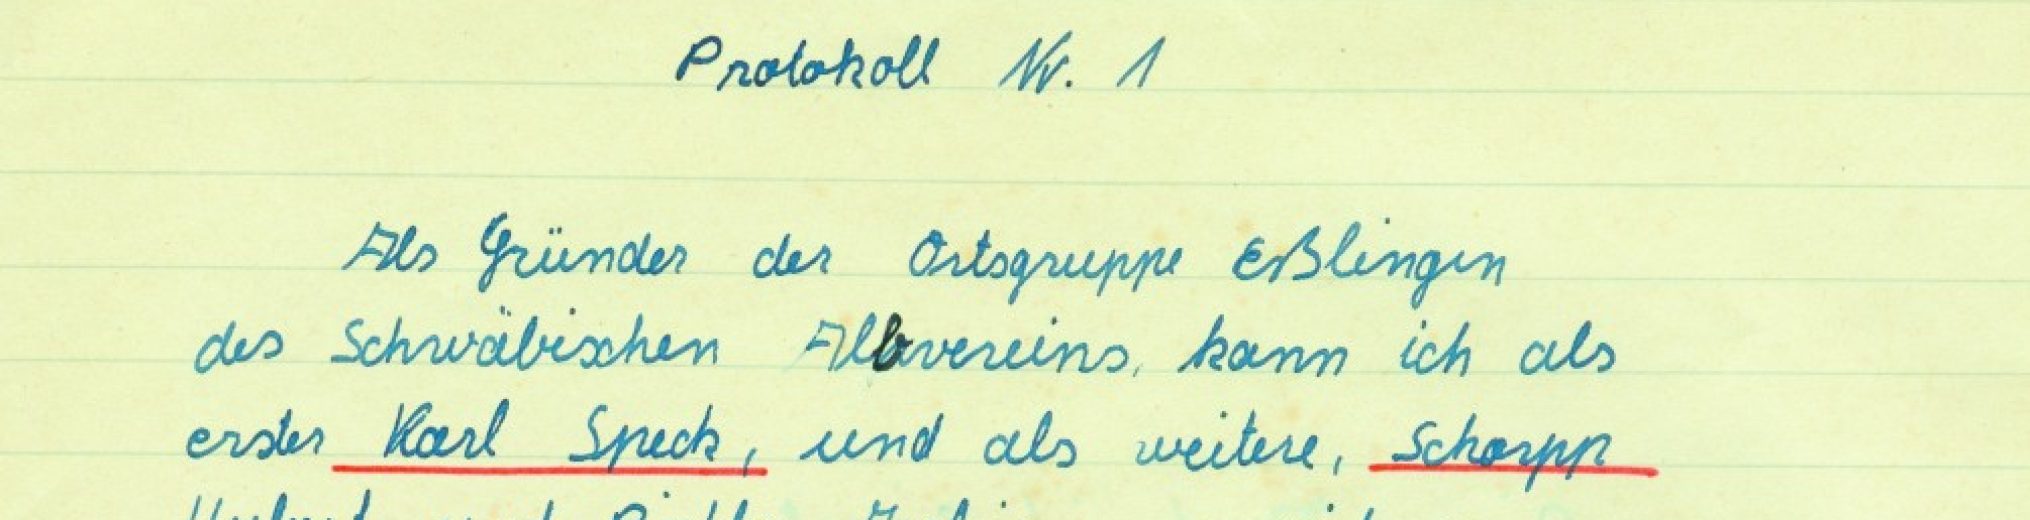 Protokoll Nr. 1
Als Gründer der Ortsgruppe Eßlingen
des Schwäbischen Albvereins, kann ich als
erster Karl Speck, und als weitere, Scharpp